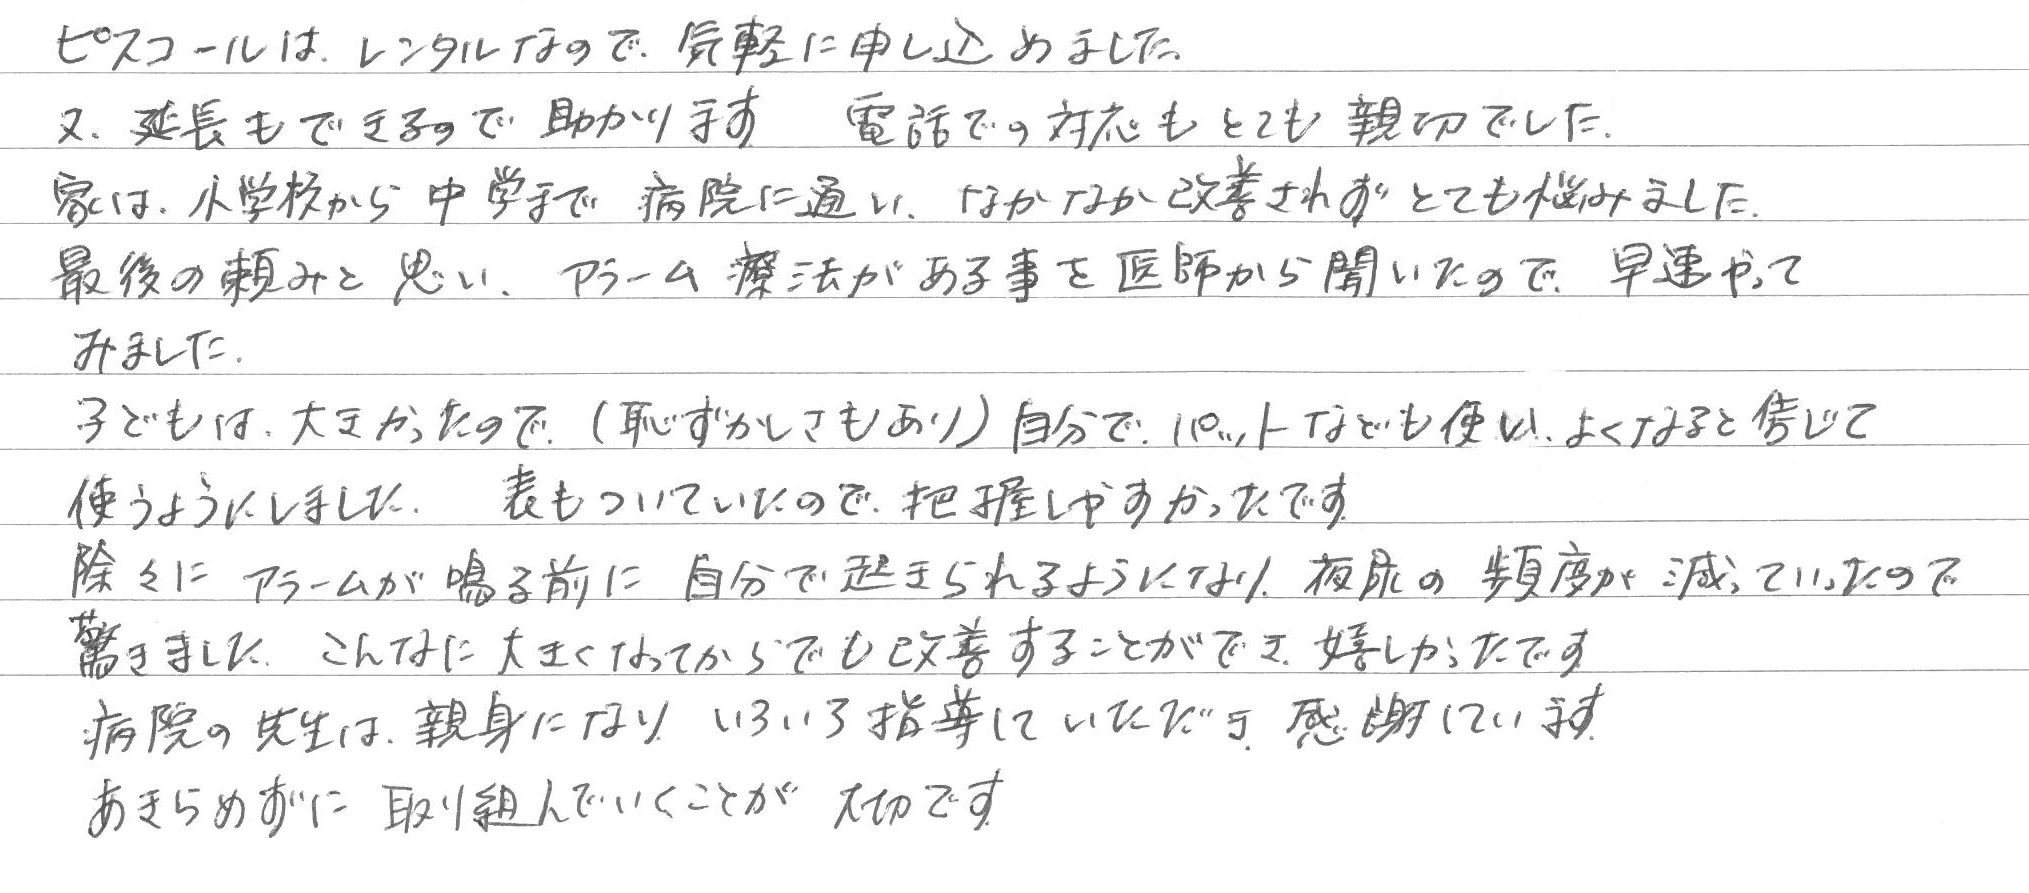 ピスコールは、レンタルなので、気軽に申し込めました。
又、延長もできるので助かります　電話での対応もとても親切でした。
家は、小学校から中学まで病院に通い、なかなか改善されずとても悩みました。
最後の頼みと思い、アラーム療法がある事を医師から聞いたので、早速やって
みました。
子どもは、大きかったので、(恥ずかしさもあり)自分で、パットなども使い、よくなると信じて
使うようにしました。　表もついていたので、把握しやすかったです
除々にアラームが鳴る前に自分で起きられるようになり、夜尿の頻度が減っていったので
驚きました。こんなに大きくなってからでも改善することができ、嬉しかったです
病院の先生は、親身になり、いろいろ指導していただき、感謝しています。
あきらめずに取り組んでいくことが大切です